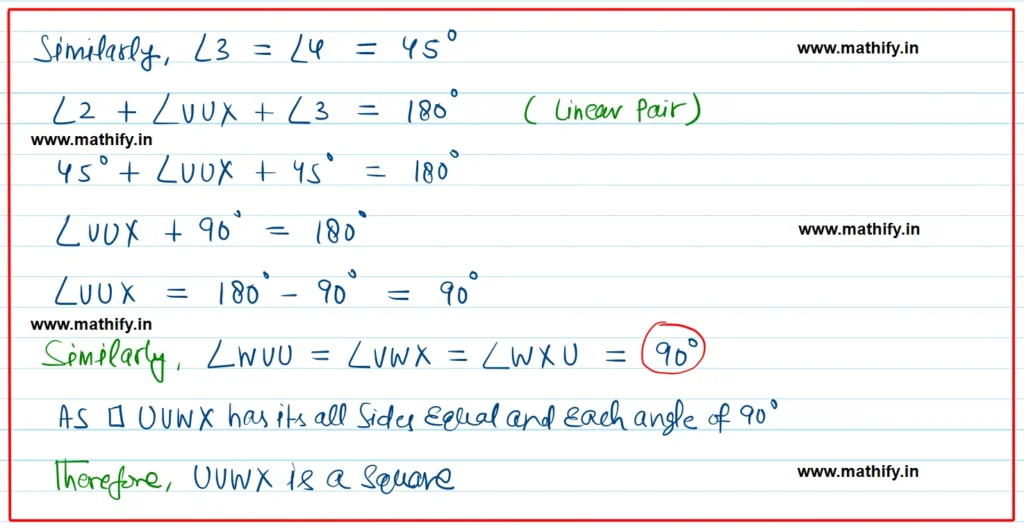 Similarly, ∠3 = ∠4 = 45°
www.mathify.in
∠2 + ∠VUX + ∠3 = 180° (Linear Pair)
www.mathify.in
45° + ∠VUX + 45° = 180°
∠VUX + 90° = 180°
www.mathify.in
∠VUX = 180° - 90° = 90°
www.mathify.in
Similarly, ∠WVU = ∠VWX = ∠WXU = 90°
As □ UVWX has its all sides equal and each angle of 90°
Therefore, UVWX is a square
www.mathify.in